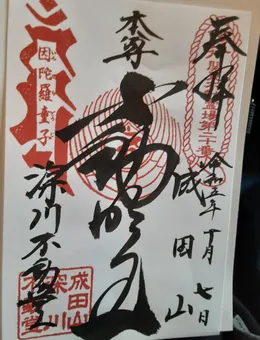 奉拝
霊場第二十番
令和五年十月七日
成田山
本尊
不動明王
因陀羅童子
深川不動堂
成田山
深川
不動堂